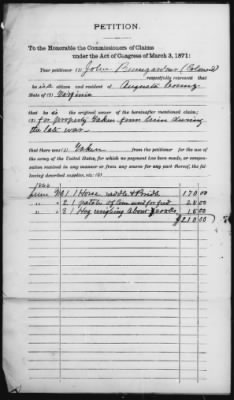 PETITION.
To the Honorable the Commissioners of Claims
under the Act of Congress of March 3, 1871:
Your petitioner (1) John Bumgardner (Colored)
respectfully represents that
he is a citizen and resident of Augusta County
State of (2) Virginia
that he is the original owner of the hereinafter mentioned claim;
(3) for property taken from him during
the late war
that there was (4) Taken from the petitioner for the use of
the army of the United States, for which no payment has been made, or compen-
sation received in any manner or from any source for any part thereof, the
described supplies, etc.
June No 1 1 Horse saddle & Bridle 170.00
" " 2 1 of corn used for feed 25.00
" " 3 1 Hog weighing about 15.00
$210.00